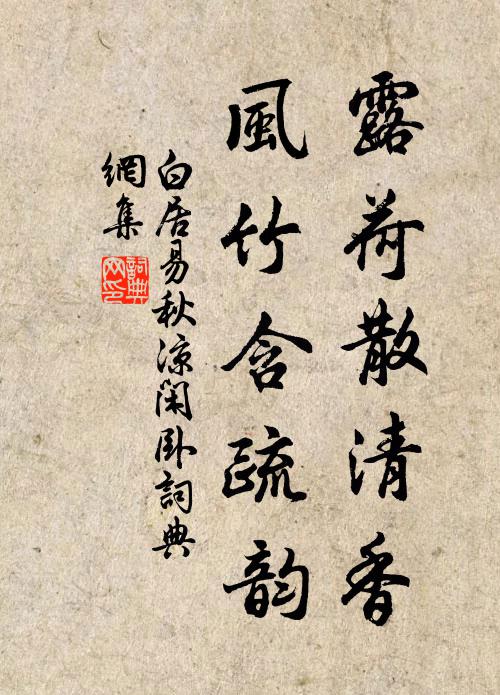 露荷散清香
風竹含疏韵
白居易秋凉閑卧詞典
網集
詞典
网印